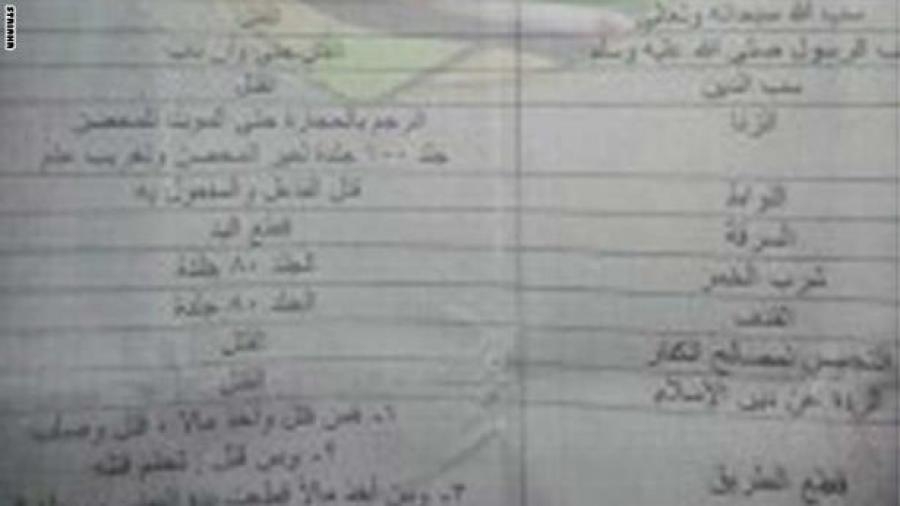 سب الله سبحانه وتعالى القتل
سب الرسول صلى الله عليه وسلم القتل حتى وإن تاب
سب الدين القتل
الزنا الرجم بالحجارة حتى الموت للمحصن
جلد ١٠٠ جلدة لغير المحصن وتغريب عام
اللواط قتل الفاعل والمفعول به
السرقة قطع اليد
شرب الخمر الجلد ٨٠ جلدة
القذف الجلد ٨٠ جلدة
التجسس لمصالح الكفار القتل
الردة عن دين الإسلام القتل
١- فمن قتل وأخذ مالا ، قتل وصلب
٢- ومن قتل ، تحتم قتله
قطع الطريق
٣- ومن أخذ مالا قطعت يده